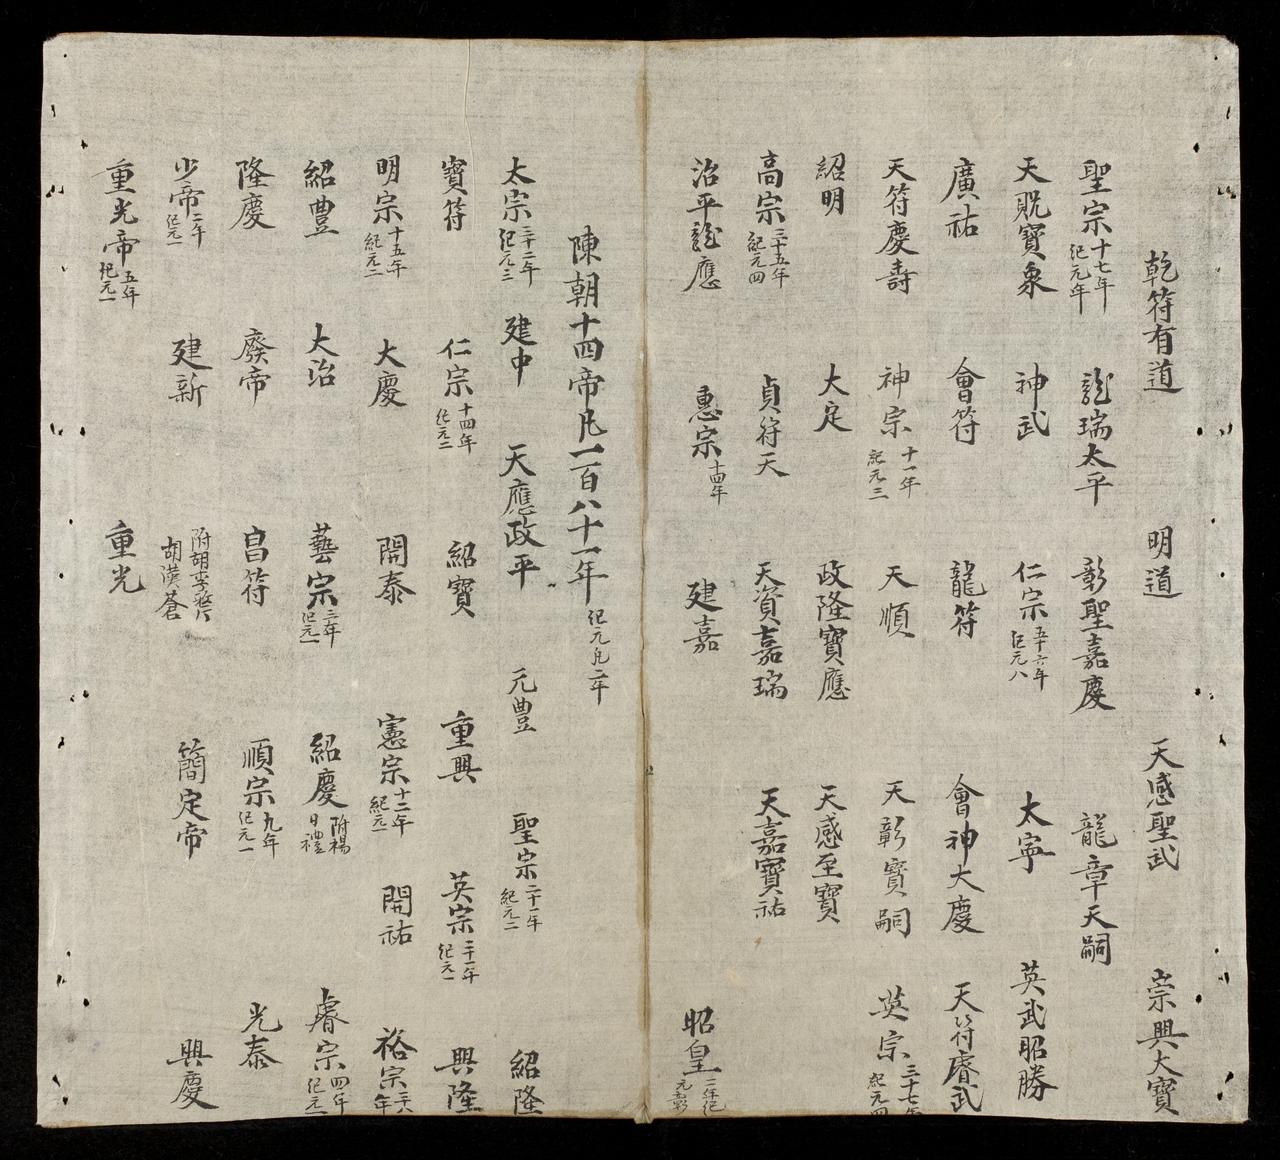 乾符有道 明道 天感聖武 崇興大寶
聖宗 十七年 紀元年 龍瑞太平 彰聖嘉慶 龍章天嗣
天貺寶象 神武 仁宗 五十六年 紀元八 太寧 英武昭勝
廣祐 會符 龍符 會神大慶 天符睿武
天符慶壽 神宗 十一年 紀元三 天順 天彰寶嗣 英宗 三十七年 紀元四
紹明 大定 政隆寶應 天感至寶
高宗 三十五年 紀元四 貞符天 天資嘉瑞 天嘉寶祐
治平龍應 惠宗 十四年 建嘉 昭皇 二年紀
陳朝十四帝凡一百八十一年 紀元凡二年
太宗 三十二年 紀元三 建中 天應政平 元豊 聖宗 二十一年 紀元二 紹隆
寶符 仁宗 十四年 紀元二 紹寶 重興 英宗 二十一年 紀元一 興隆
明宗 十五年 紀元二 大慶 開泰 憲宗 十二年 紀元一 開祐 裕宗 年
紹豊 大治 藝宗 三年 紀元一 紹慶 附楊日禮 睿宗 四年 紀元一
隆慶 廢帝 昌符 順宗 九年 紀元一 光泰
少帝 二年 紀元一 建新 附胡季犛 胡漢蒼 簡定帝 興慶
重光帝 五年 紀元一 重光